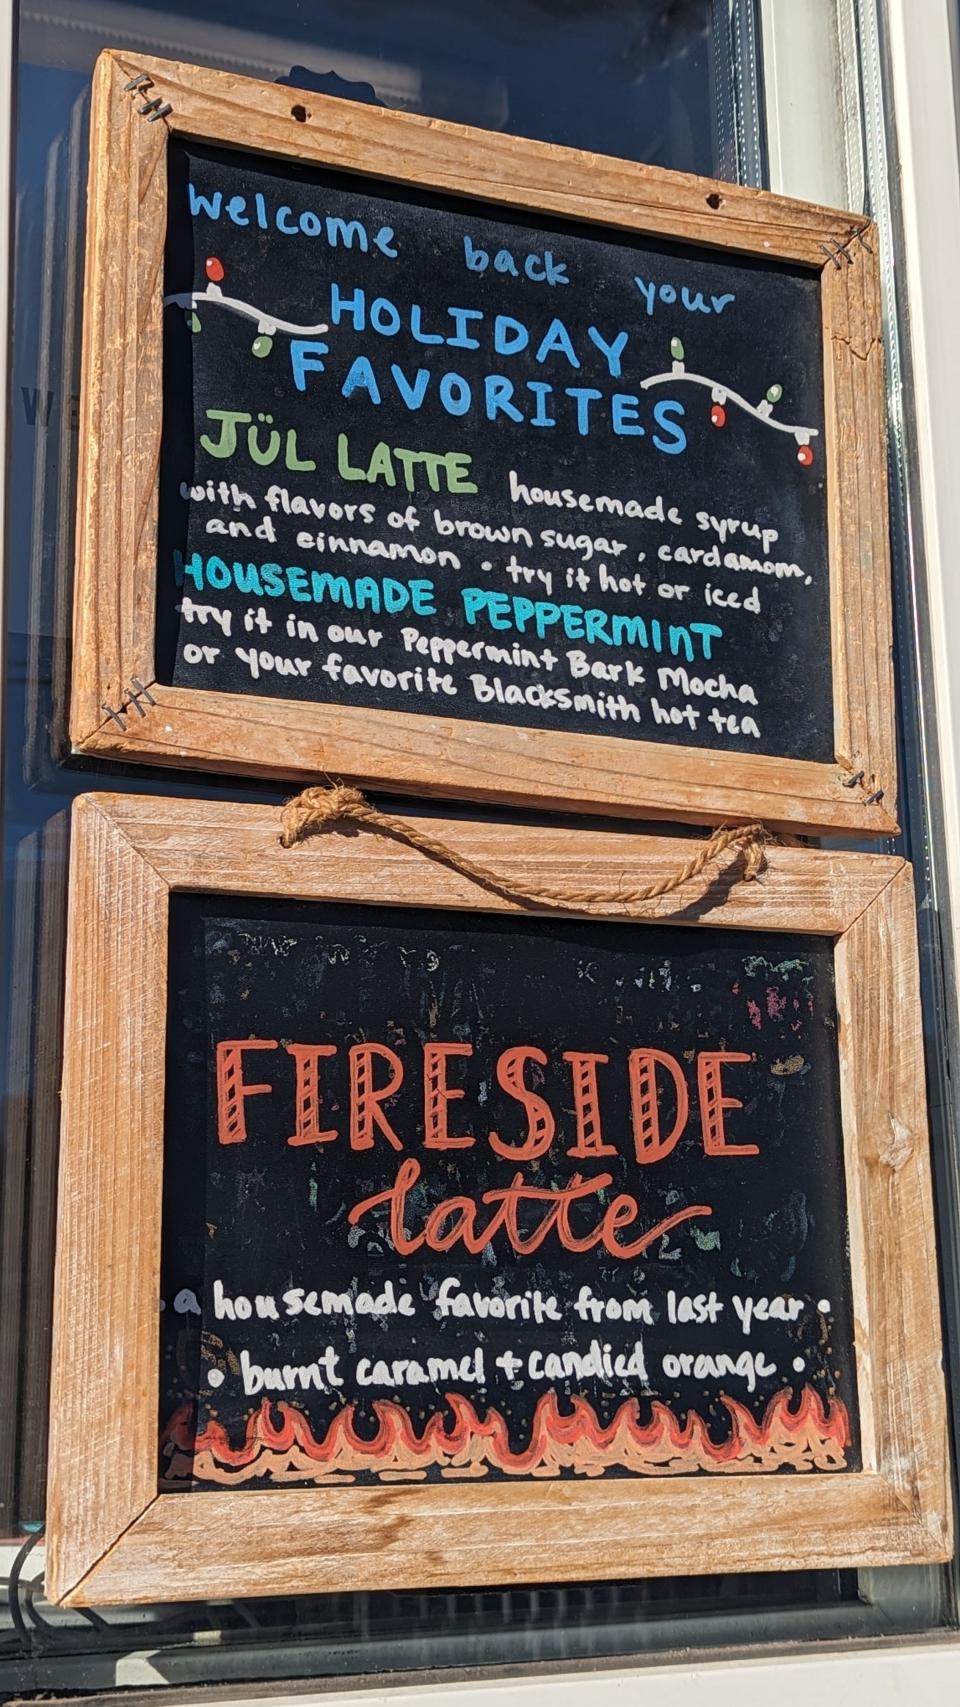 welcome back your
HOLIDAY
FAVORITES
JÜL LATTE housemade syrup
with flavors of brown sugar, cardamom,
and cinnamon • try it hot or iced
HOUSEMADE PEPPERMINT
try it in our Peppermint Bark Mocha
or your favorite Blacksmith hot tea
FIRESIDE
latte
• a housemade favorite from last year •
• burnt caramel + candied orange •